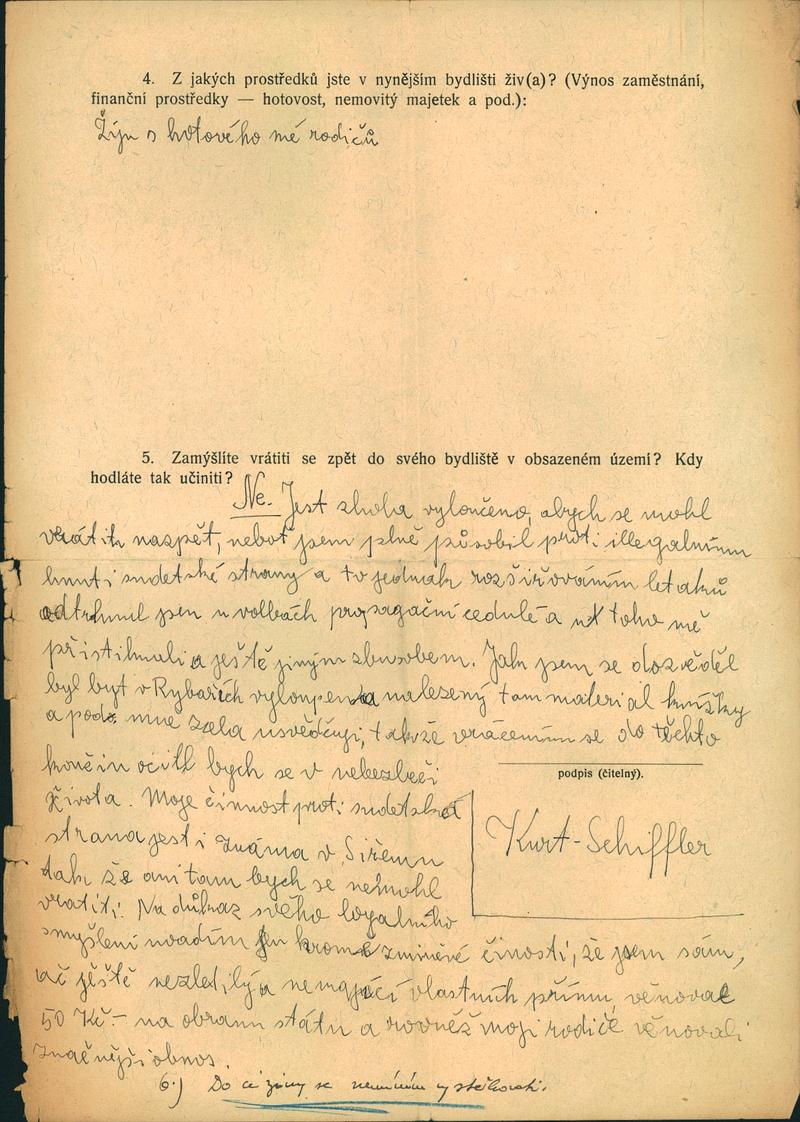 4. Z jakých prostředků jste v nynějším bydlišti živ(a)? (Výnos zaměstnání,
finanční prostředky — hotovost, nemovitý majetek a pod.):
Žiju s hotového mé rodičů
5. Zamýšlíte vrátiti se zpět do svého bydliště v obsazeném území? Kdy
hodláte tak učiniti?
Ne. Jest zhola vyloučeno, abych se mohl
vrátiti nazpět, neboť jsem plně působil proti illegalnímu
hnuti sudetské strany a to jednak rozšiřováním letaků
odtrhnul jsem u volbách propagační cedulé a při toho mě
přistihnali a ještě jiným zbusobem. Jak jsem se dozvěděl
byl byt v Rybařích vyloupen a nalezený tam material knížky
a pod. mne zcela usvědčují, takže vrácením se do těchto
končin ocitl bych se v nebezbečí
života. Moje činnost proti sudetské
strana jest i známa v Siřemu
tak že ani tam bych se nemohl
vratiti. Na důkaz svého loyalního
smyšlení uvadím jen kromě zminěvé činosti, že jsem sám,
ač ještě nezletilý a nemající vlastních přímu, věnoval
50 Kč.- na obranu státu a rovněž moji rodiče věnovali
značnější obnos.
podpis (čitelný).
Kurt-Schiffler
6.) Do ciziny se nemíním vystěhovati.